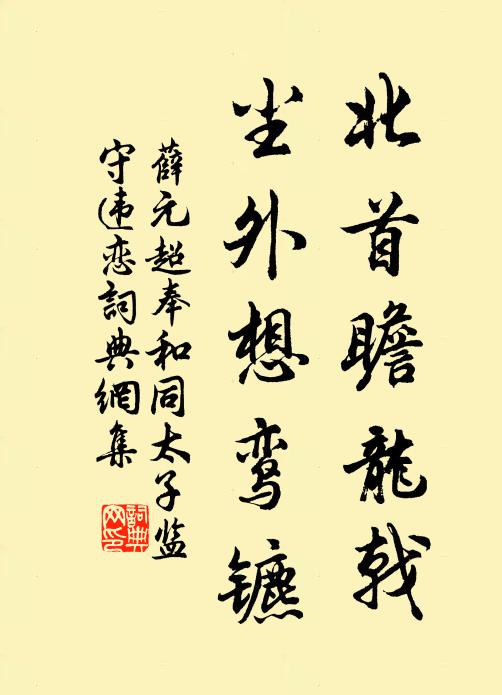 北首瞻龍戟
尘外想鸾镳
薛元超奉和同太子监
守违恋詞典網集
詞典网印